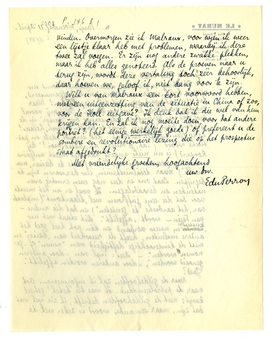 vinden. Overmorgen zie ik Malraux, voor wien ik weer
een lijstje klaar heb met problemen, waarbij ik deze
twee zal voegen. Er zijn nog andere zwakke plekken,
maar ik heb alles genoteerd. Als de proeven naar u
terug zijn, wordt deze vertaling toch zeer behoorlijk,
daar hoeven we, geloof ik, niet bang voor te zijn.
Wilt u van Malraux een kort voorwoord hebben,
uiteenzetting van de situatie in China of zoo,
voor de Holl. uitgave? Ik denk dat ik die wel van hem
krijgen kan. En zal ik nog moeite doen voor dat andere
portret? (het eenige werkelijk goede) of prefereert u de
sombere en revolutionaire lezing die op het prospectus
staat afgedrukt?
Met vriendelijke groeten, hoogachtend
uw dw.
EduPerron